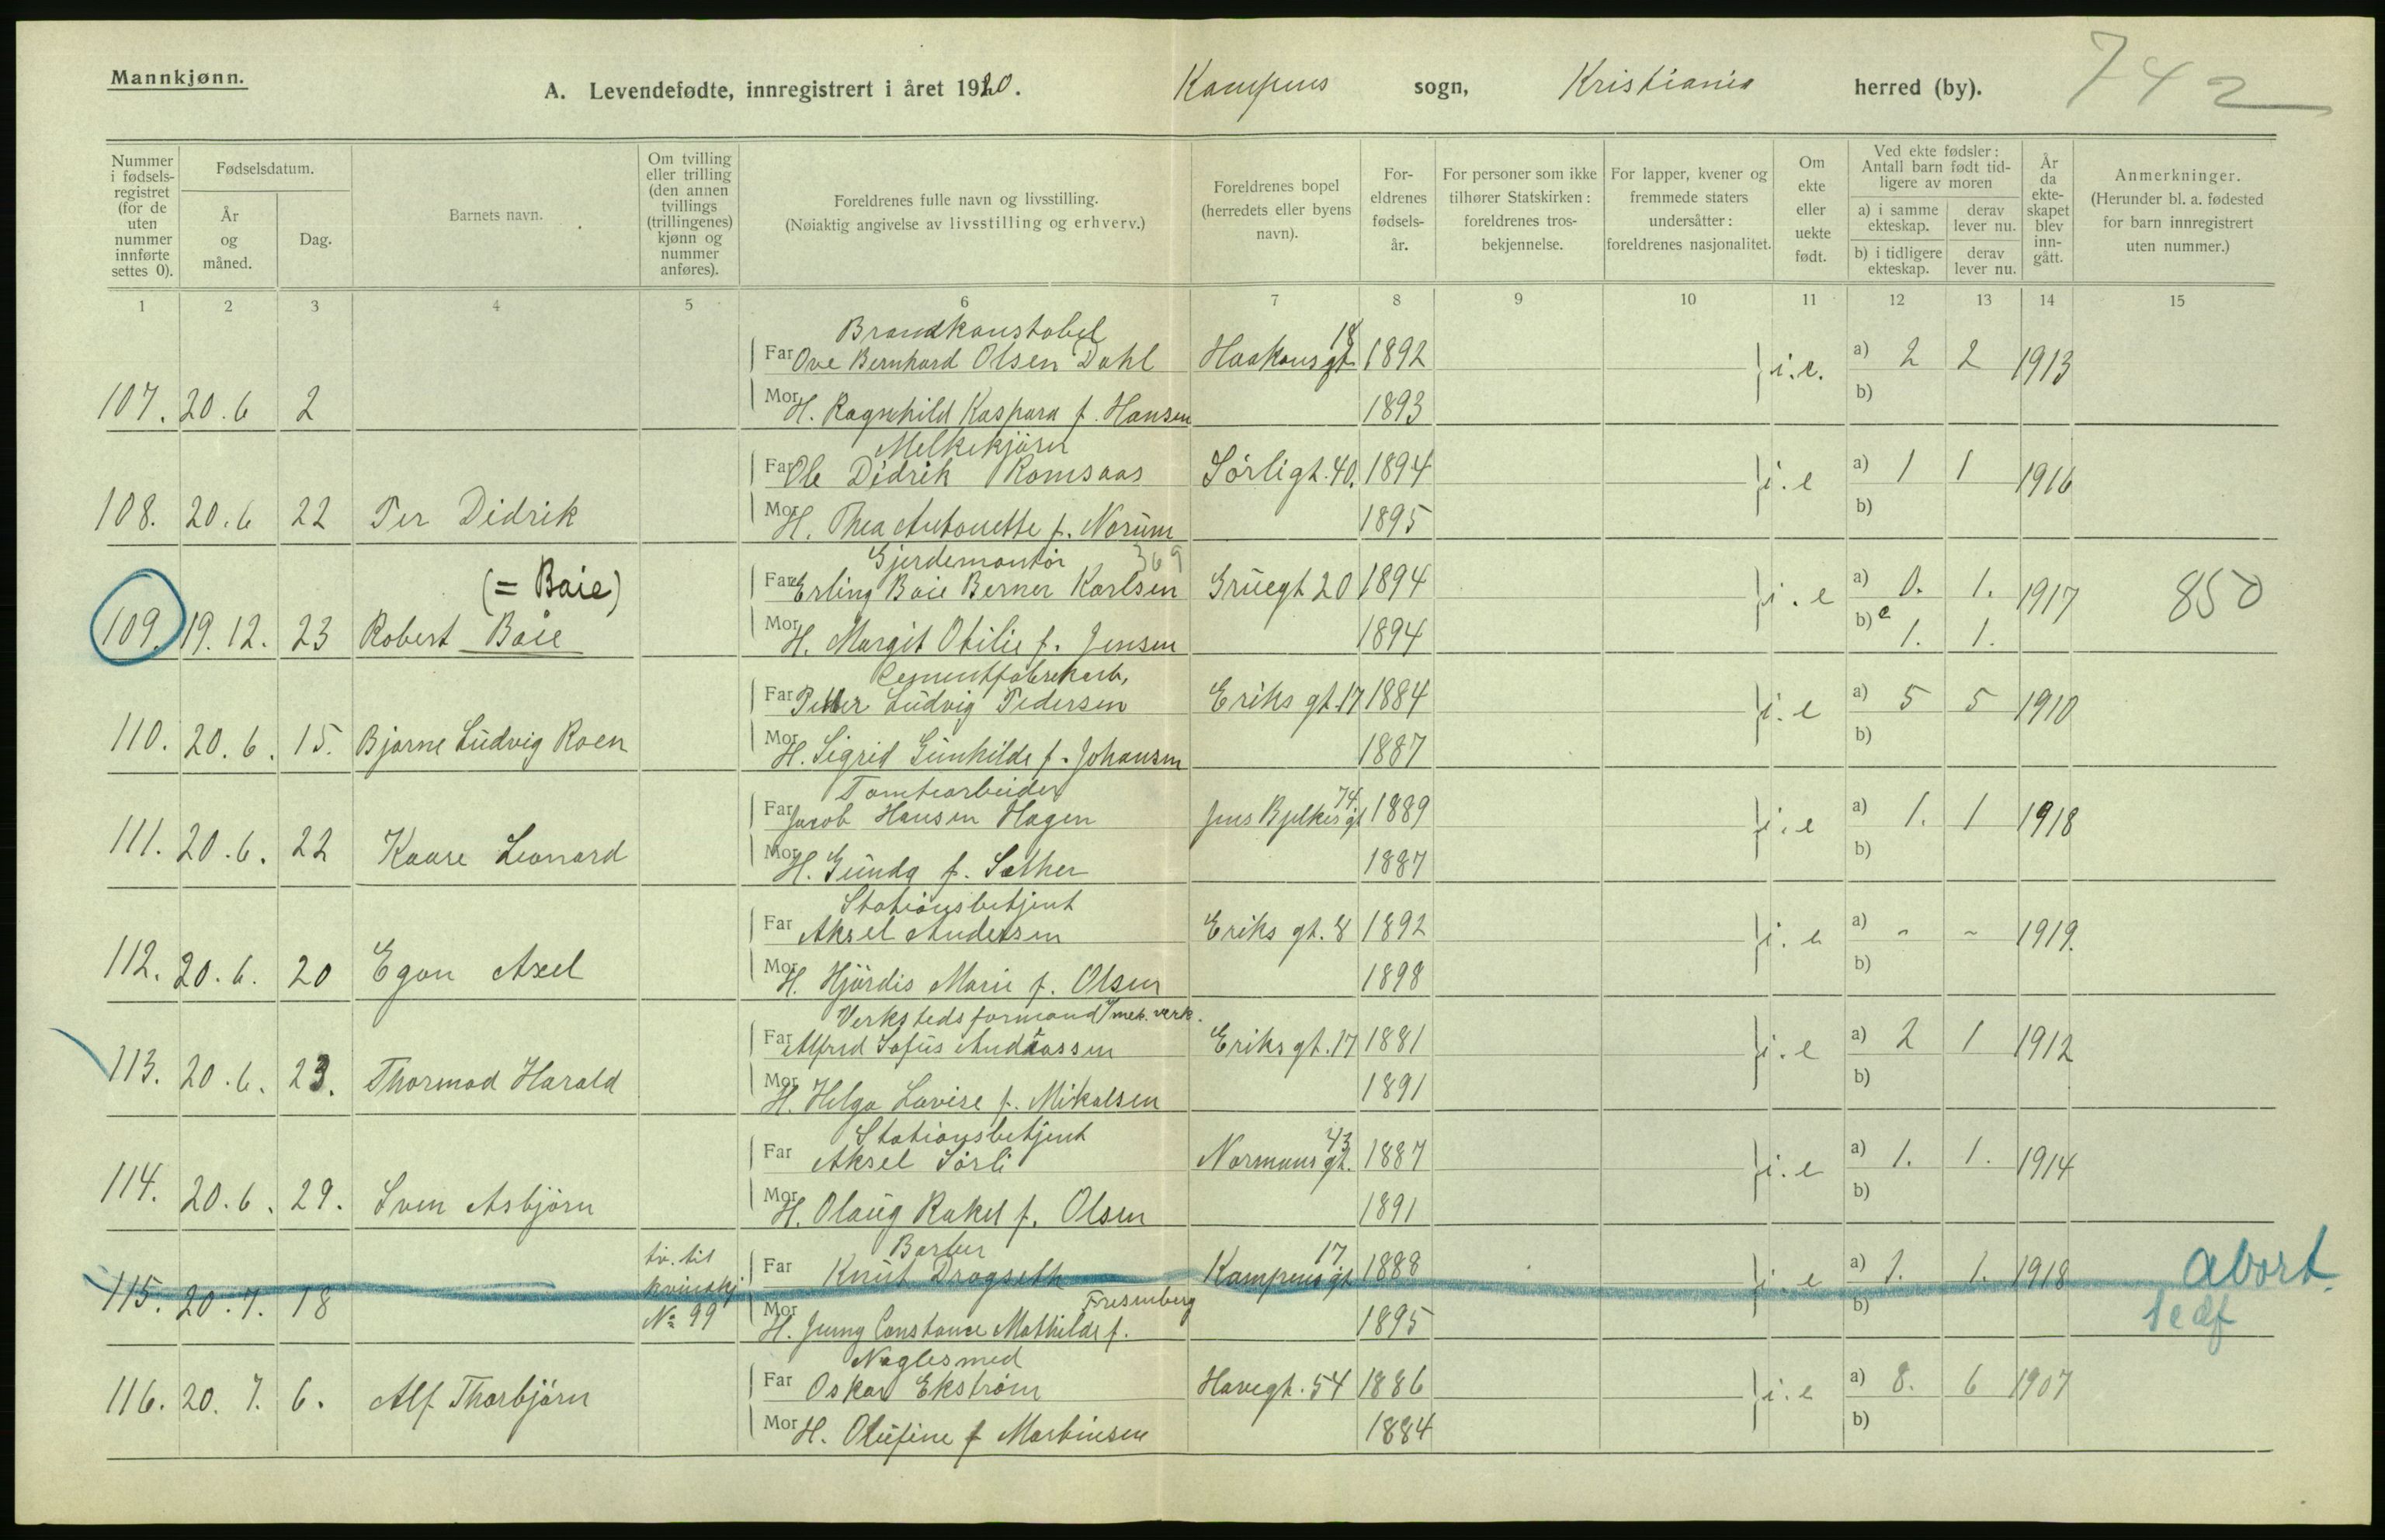 Mannkjønn.
A. Levendefødte, innregistrert i året 1920. Kampens sogn, Kristiania herred (by). 742
Nummer i fødsels-registret (for de uten nummer innførte settes 0).
Fødselsdatum.
År og måned.
Dag.
Barnets navn.
Om tvilling eller trilling (den annen tvillings (trillingenes) kjønn og nummer anføres).
Foreldrenes fulle navn og livsstilling.
(Nøiaktig angivelse av livsstilling og erhverv.)
Foreldrenes bopel (herredets eller byens navn).
For-eldrenes fødsels-år.
For personer som ikke tilhører Statskirken: foreldrenes tros-bekjennelse.
For lapper, kvener og fremmede staters undersåtter: foreldrenes nasjonalitet.
Om ekte eller uekte født.
Ved ekte fødsler: Antall barn født tid-ligere av moren
a) i samme ekteskap.
derav lever nu.
b) i tidligere ekteskap.
derav lever nu.
År da ekte-skapet blev inn-gått.
Anmerkninger.
(Herunder bl. a. fødested for barn innregistrert uten nummer.)
1 2 3 4 5 6 7 8 9 10 11 12 13 14 15
Brandkonstabel
Far Ove Bernhard Olsen Dahl Haakonsgt. 18 1892 i. e. a) 2 2 1913
107. 20.6 2 Mor H. Ragnhild Kaspara f. Hansen 1893 b)
Melkekjörer
Far Ole Didrik Romsaas Sörligt. 40. 1894 i. e a) 1 1 1916
108. 20.6 22 Per Didrik Mor H. Thea Antonette f. Norum 1895 b)
Gjerdemontör 369
(= Baie) Far Erling Baie Berner Karlsen Grüegt 20 1894 i. e a) 0. 1. 1917 850
109. 19.12. 23 Robert Baie Mor H. Margit Otilie f. Jensen 1894 b) e 1. 1.
Cementfabrikarb.
Far Petter Ludvig Pedersen Eriks gt. 17 1884 i. e a) 5 5 1910
110. 20.6. 15. Bjarne Ludvig Roen Mor H. Sigrid Gunhilde f. Johansen 1887 b)
Tomtearbeider
Far Jacob Hansen Hagen Jens Bjelkes gt 74 1889 i. e a) 1. 1 1918
111. 20.6. 22 Kaare Leonard Mor H. Gunda f. Sæther 1887 b)
Stationsbetjent
Far Aksel Andersen Eriks gt. 8 1892 i. e a) - - 1919.
112. 20.6. 20 Egon Axel Mor H. Hjördis Marie f. Olsen 1898 b)
Verkstedsformand mek. verk.
Far Alfred Sofus Andreassen Eriks gt. 17 1881 i. e a) 2 1 1912
113. 20.6. 23. Thormod Harald Mor H. Helga Lovise f. Mikalsen 1891 b)
Stationsbetjent
Far Aksel Sörli Normans gt. 43 1887 i. e a) 1. 1. 1914
114. 20.6. 29. Sven Asbjörn Mor H. Olaug Rakel f. Olsen 1891 b)
tv. til Barber
kvinskj Far Knut Dragseth Kampens gt 17 1888 i. e a) 1. 1. 1918 abort
115. 20.7. 18 No 99 Mor H. Jenny Constance Mathilde f. Fresenberg 1895 b) se df
Naglesmed
Far Oskar Ekström Havegt. 54 1886 i. e a) 8. 6 1907
116. 20. 7. 6. Alf Thorbjörn Mor H. Olufine f Martinsen 1884 b)